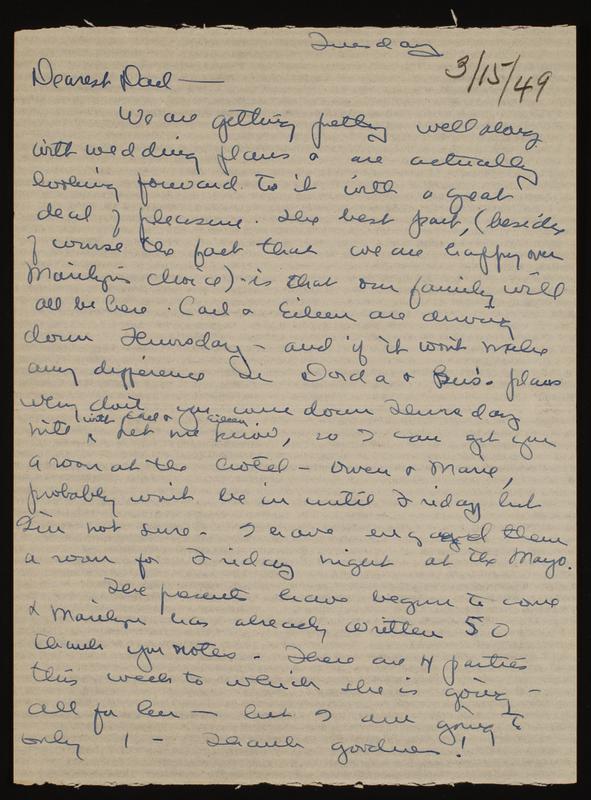 Tuesday
3/15/49
Dearest Dad —
We are getting pretty well along
with wedding plans & are actually
looking forward to it with a great
deal of pleasure. The best part, (besides
of course the fact that we are happy over
Marilyn's choice) - is that our family will
all be here. Carl & Eileen are driving
down Thursday - and if it won't make
any difference in Dorda & Gus's plans
why don't you come down Thursday
with Carl & Eileen
nite ^ Let me know, so I can get you
a room at the hotel - Owen & Marie,
probably won't be in until Friday but
I'm not sure. I have engaged them
a room for Friday night at the Mayo.
The presents have begun to come
& Marilyn has already written 50
thank you notes. There are 4 parties
this week to which she is going -
all for her - but I am going to
only 1 - Thank goodness!